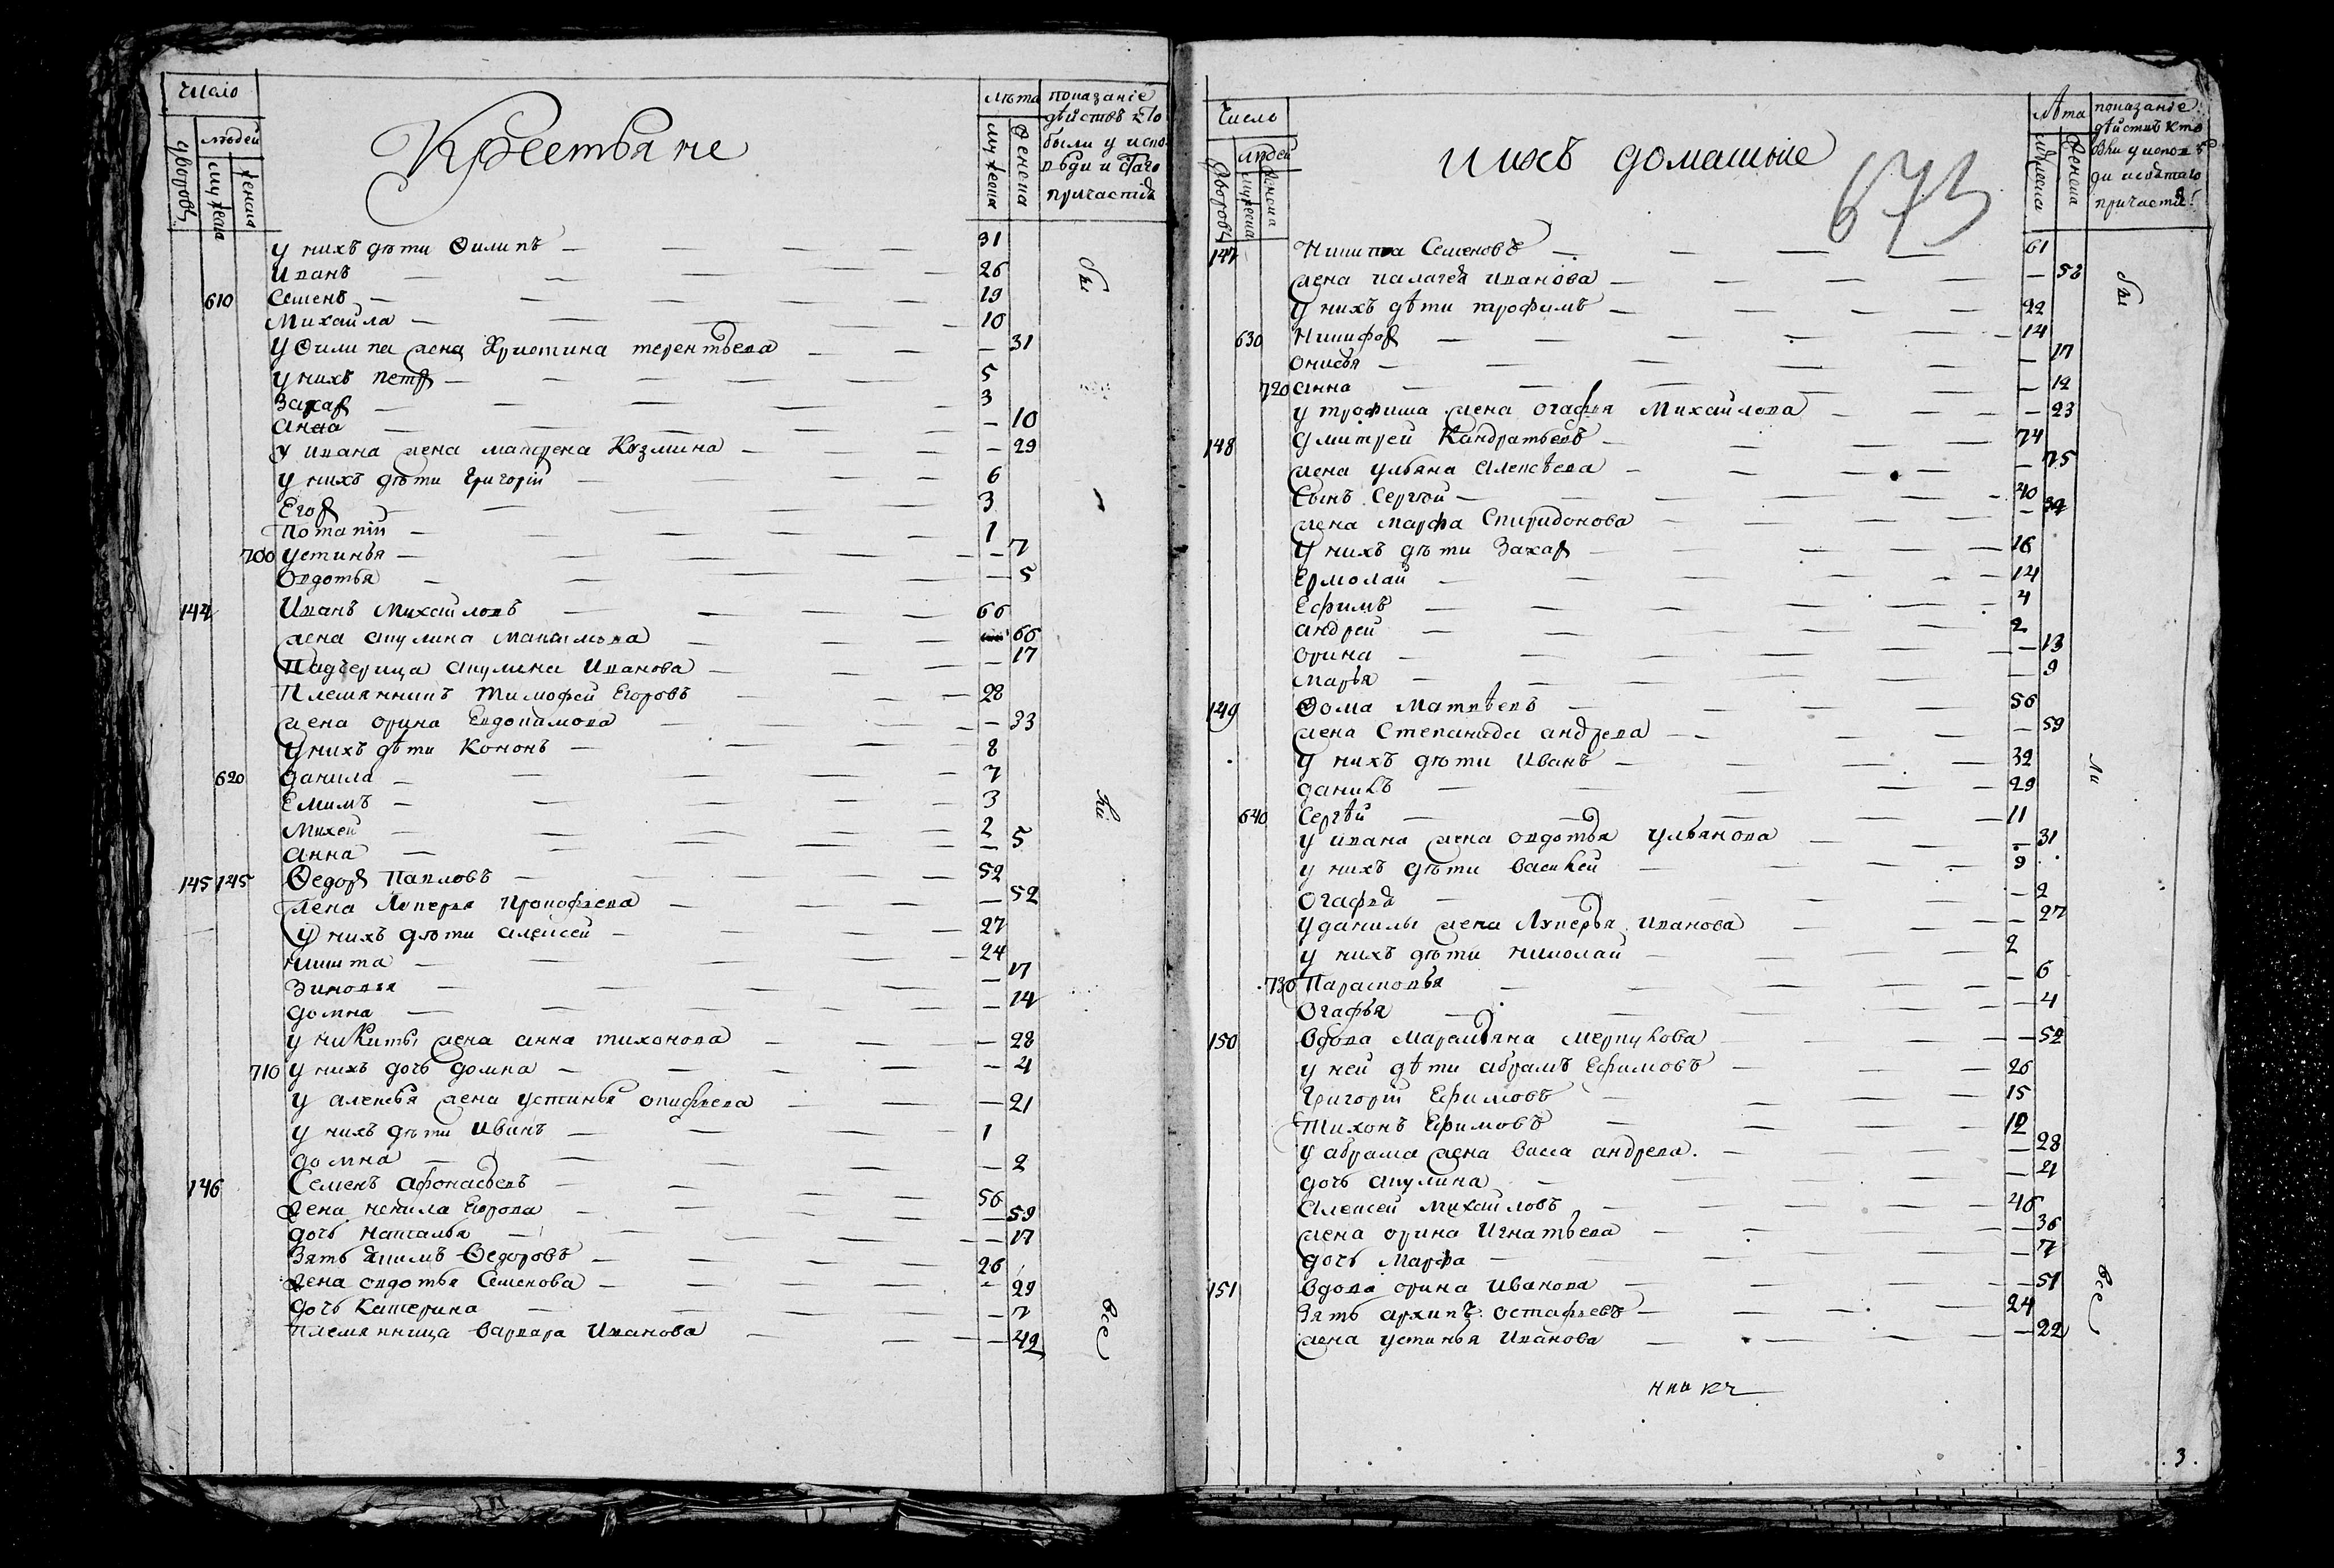 Число
людей
дворовъ
мужеска
женска
Крестьяне
лѣта
мужеска
женска
показаніе
дѣйствъ кто
были у испо
вѣди и с̃таго
причастія
у нихъ дѣти Ѳилипъ — 31
Иванъ — 26
610 Семенъ — 19
Михаила — 10
у Ѳилипа жена Христина терентьева — 31
у нихъ петр — 5
Захар — 3
Анна — 10
у ивана жена матрена Козмина — 29
у нихъ дѣти Григорій — 6
Егор — 3
Потапій — 1
700 устинья — 7
Овдотья — 5
144 Иванъ Михаиловъ — 66
жена акулина Максимова — 66
Падчерица акулина Иванова — 17
Племянникъ Тимофей Егоровъ — 28
жена орина Евдокимова — 33
у нихъ дѣти Кононъ — 8
620 данила — 7
Екимъ — 3
Михей — 2
анна — 5
145 145 Ѳедор Павловъ — 52
жена Лукерья Прокофьева — 52
у нихъ дѣти алексей — 27
никита — 24
Зиновья — 17
домна — 14
у никиты жена анна тихонова — 28
710 у нихъ дочь домна — 4
у алексѣя жена устинья
— 21
у нихъ дѣти Иванъ — 1
домна — 2
146 Семенъ афонасьевъ — 56
жена ненила Егорова — 59
дочь наталья — 17
Зять якимъ Ѳедоровъ — 26
жена овдотья Семенова — 29
дочь Катерина — 7
племянница варвара Иванова — 49
бы
ли
все
Число
людей
дворовъ
мужеска
женска
и ихъ домашніе
673
лѣта
мужеска
женска
показаніе
дѣйствъ кто
были у исповѣ
ди и святаго
причастія
147 Никита Семеновъ — 61
жена палагея иванова — 58
у нихъ дѣти трофимъ — 22
630 Никифор — 14
онисья — 17
720 анна — 12
у трофима жена огафья Михаилова — 23
148 дмитрей Кандратьевъ — 74
жена ульяна алексѣева — 75
Сынъ Сергѣй — 40
жена марфа Спиридонова — 39
у нихъ дѣти Захар — 16
Ермолай — 14
Ефимъ — 4
андрей — 2
орина — 13
марья — 9
149 Ѳома Матвѣевъ — 56
жена Степанида андреева — 59
у нихъ дѣти Иванъ — 32
данилъ — 29
640 Сергѣй — 11
у ивана жена овдотья ульянова — 31
у нихъ дѣти василей — 9
Огафья — 2
у данилы жена Лукерья Иванова — 27
у нихъ дѣти николай — 2
730 Парасковья — 6
Огафья — 4
150 Вдова Маремьяна Меркулова — 52
у ней дѣти абрамъ Ефимовъ — 26
Григорій Ефимовъ — 15
Тихонъ Ефимовъ — 12
у абрама жена васса андреева. — 28
дочь акулина — 4
алексей михаиловъ — 46
жена орина Игнатьева — 36
дочь марфа — 7
151 Вдова орина Иванова — 51
Зять архипъ остафьевъ — 24
жена устинья Иванова — 22
бы
ли
все
3